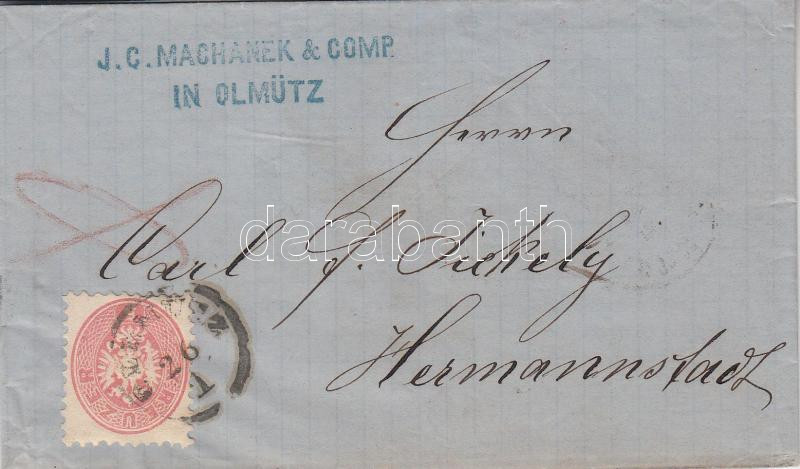 J.C. MACHANEK & COMP.
IN OLMÜTZ
Herrn
Carl f. Jickely
Hermannstadt
darabanth